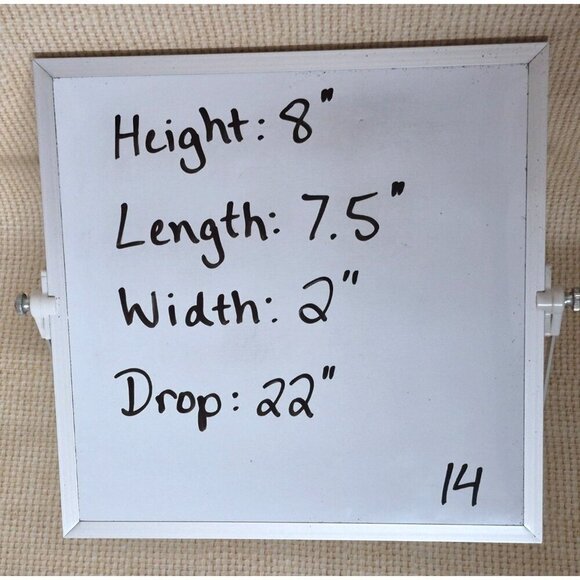 Height: 8"
Length: 7.5"
Width: 2"
Drop: 22"
14